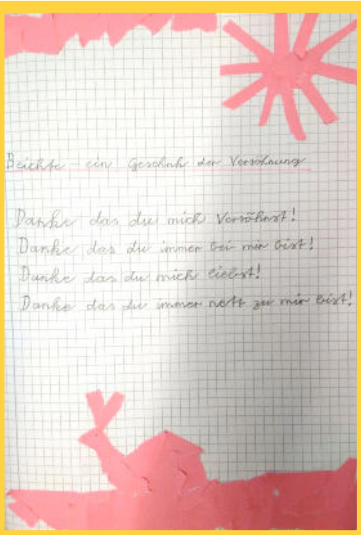 Beichte - ein Geschnk der Versöhnung
Danke das du mich Versöhnst!
Danke das du immer bei mir bist!
Danke das du mich liebst!
Danke das du immer nett zu mir bist!